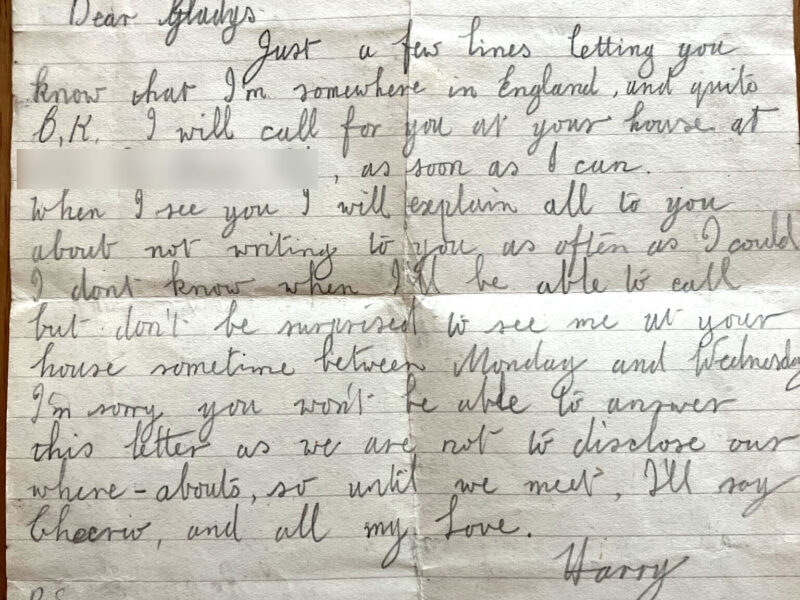 Dear Gladys.
Just a few lines letting you
know that I'm somewhere in England, and quite
O.K. I will call for you at your house at
, as soon as I can.
When I see you I will explain all to you
about not writing to you as often as I could
I dont know when I'll be able to call
but don't be surprised to see me at your
house sometime between Monday and Wednesday
I'm sorry you won't be able to answer
this letter as we are not to disclose our
where-abouts, so until we meet, I'll say
Cheerio, and all my Love.
Harry
P.S.